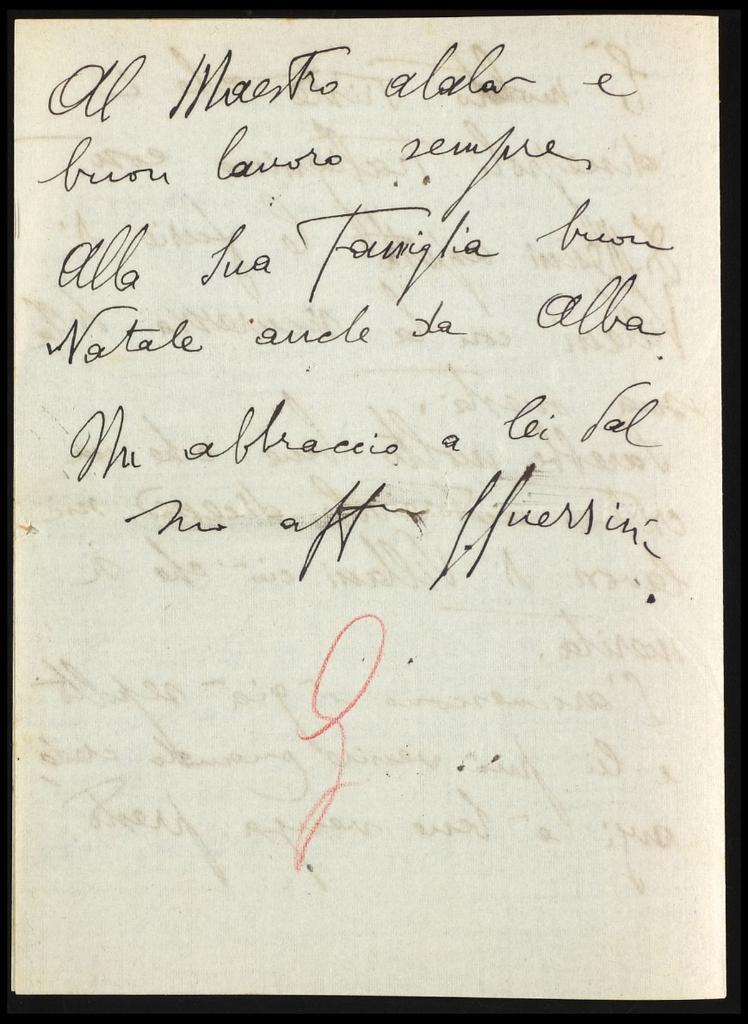 Al Maestro alalà e
buon lavoro sempre,
Alla Sua Famiglia buon
Natale anche da Alba.
Un abbraccio a lei dal
suo aff.mo Guerrini